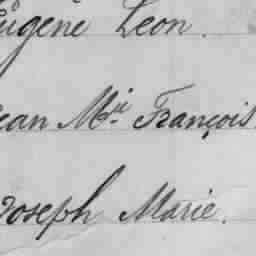 Eugène Léon.
Jean Mie François
Joseph Marie.